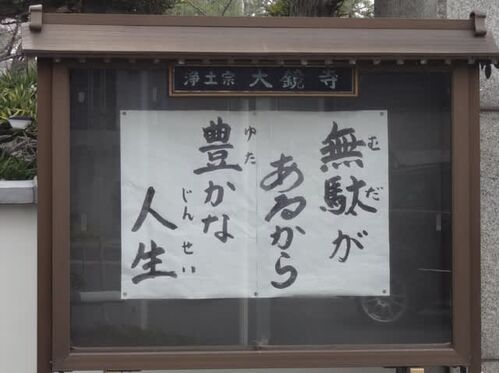 浄土宗 大鏡寺
無駄が
むだ
あるから
豊かな
ゆた
人生
じんせい